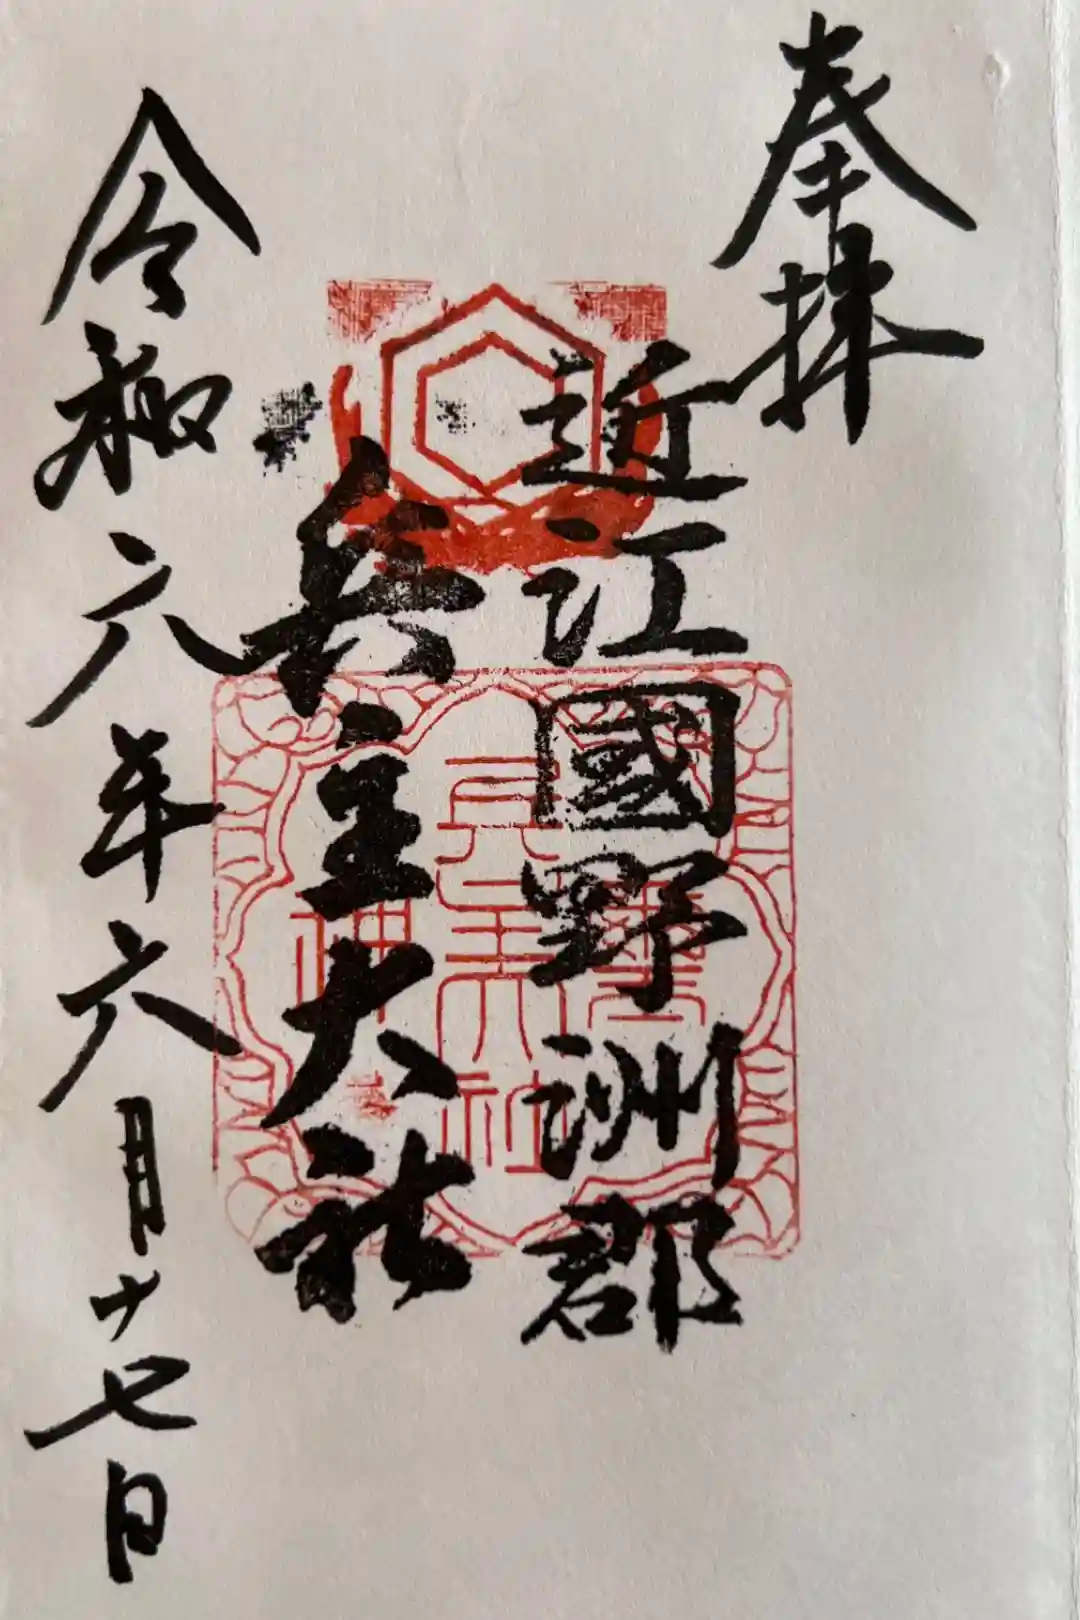 奉拝
近江國野洲郡
兵主大社
令和六年六月十七日
兵主大社